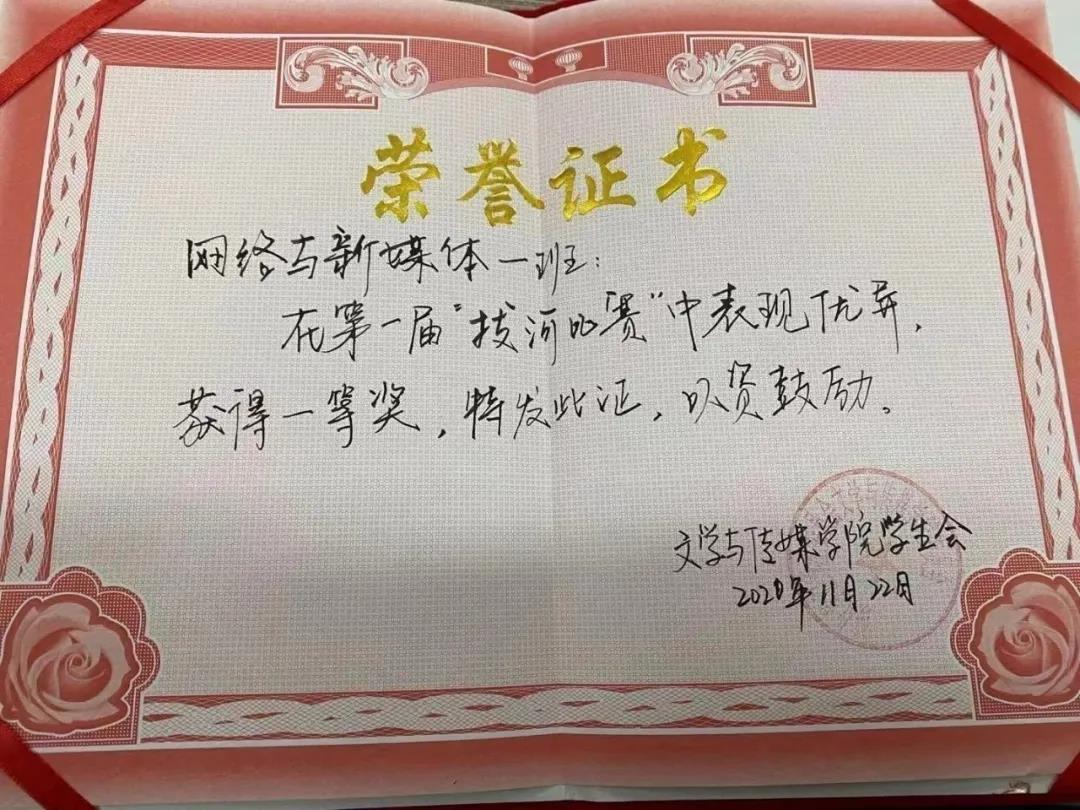 荣誉证书
网络与新媒体一班：
在第一届"拔河比赛"中表现优异，
获得一等奖，特发此证，以资鼓励。
文学与传媒学院学生会
2020年11月22日